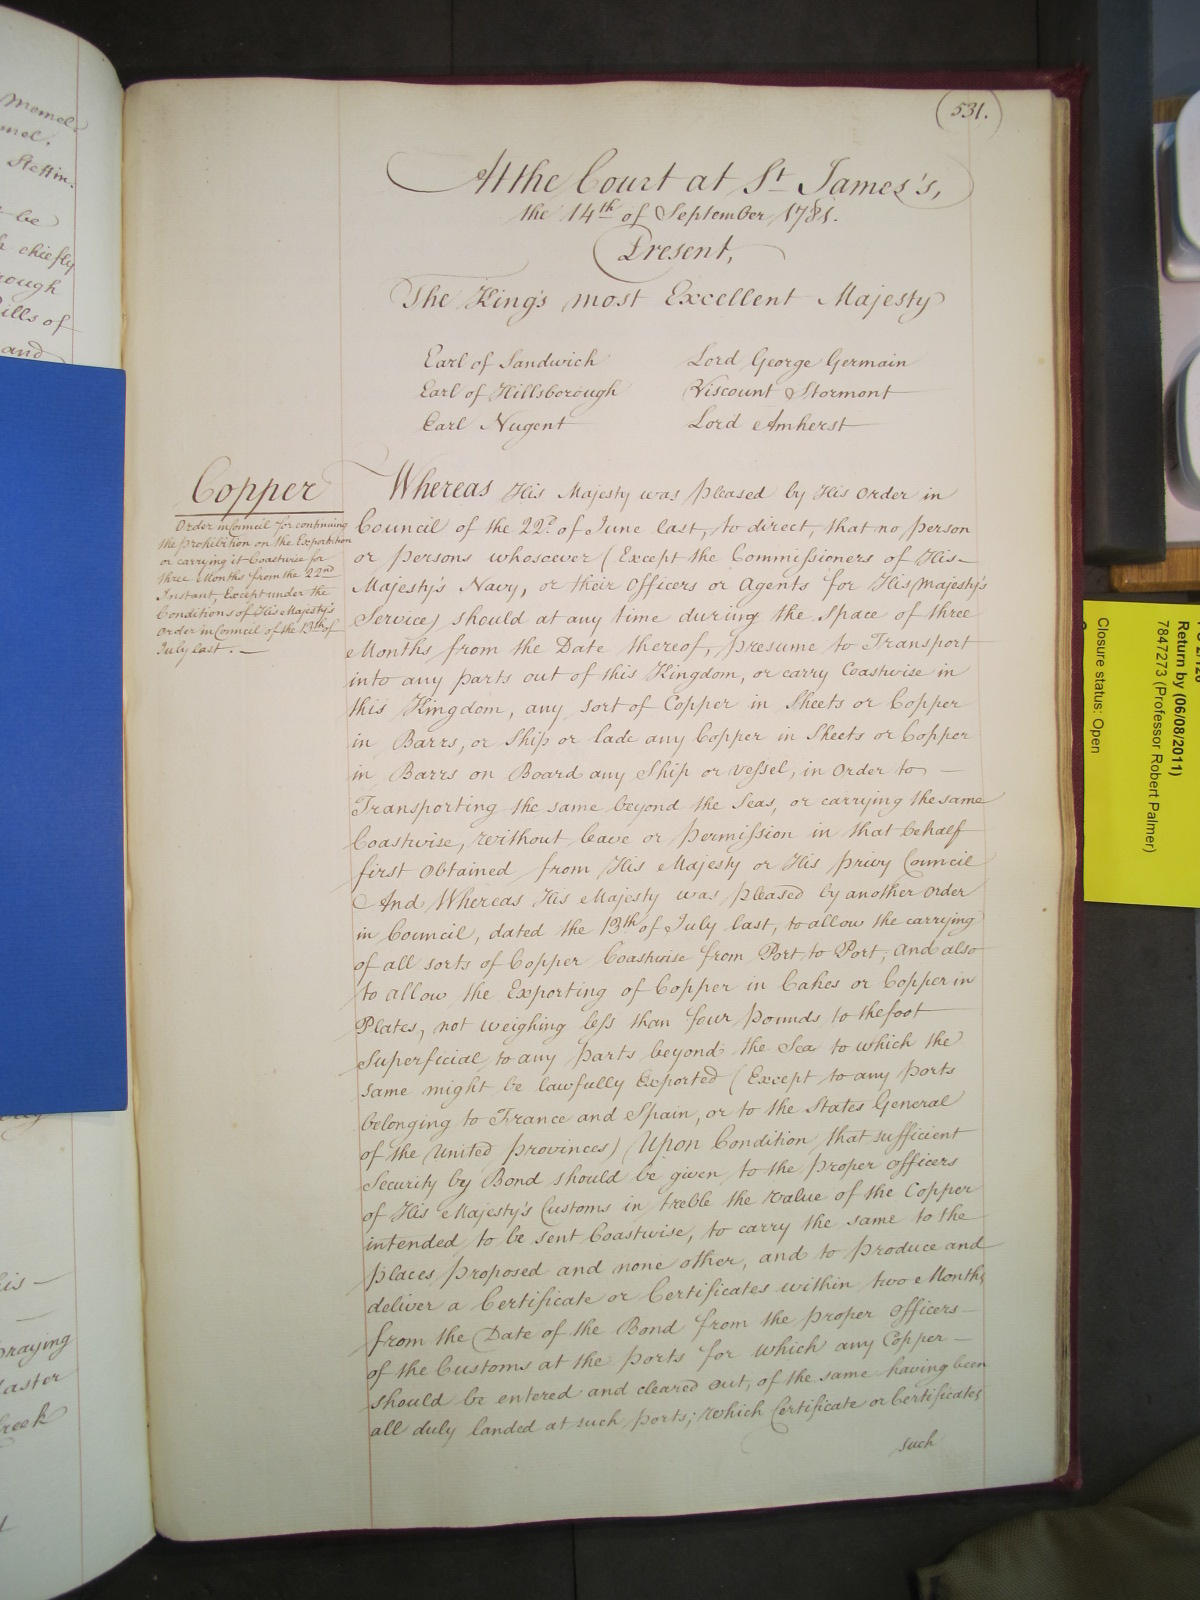 531.
At the Court at St. James's,
the 14th of September 1781.
Present,
The King's most Excellent Majesty
Earl of Sandwich Lord George Germain
Earl of Hillsborough Viscount Stormont
Earl Nugent Lord Amherst
Copper
Order in Council for continuing
the Prohibition on the Exportation
or carrying it Coastwise for
three Months from the 22nd
Instant, Except under the
Conditions of His Majesty's
Order in Council of the 13th of
July last.
Whereas His Majesty was pleased by His Order in
Council of the 22d. of June last, to direct, that no Person
or Persons whosoever (Except the Commissioners of His
Majesty's Navy, or their Officers or Agents for His Majesty's
Service) should at any time during the Space of three
Months from the Date thereof, presume to Transport
into any parts out of this Kingdom, or carry Coastwise in
this Kingdom, any sort of Copper in Sheets or Copper
in Barrs, or Ship or lade any Copper in Sheets or Copper
in Barrs on Board any Ship or Vessel, in Order to
Transporting the same beyond the Seas, or carrying the same
Coastwise, without leave or permission in that behalf
first Obtained from His Majesty or His privy Council
And Whereas His Majesty was pleased by another Order
in Council, dated the 13th of July last, to allow the carrying
of all sorts of Copper Coastwise from Port to Port, and also
to allow the Exporting of Copper in Cakes or Copper in
Plates, not weighing less than four pounds to the foot
Superficial to any parts beyond the Sea to which the
same might be lawfully Exported (Except to any ports
belonging to France and Spain, or to the States General
of the United Provinces) Upon Condition that sufficient
Security by Bond should be given to the proper officers
of His Majesty's Customs in treble the value of the Copper
intended to be sent Coastwise, to carry the same to the
places proposed and none other, and to produce and
deliver a Certificate or Certificates within two Months
from the Date of the Bond from the proper officers
of the Customs at the ports for which any Copper
should be entered and cleared out, of the same having been
all duly landed at such ports; which Certificate or Certificates
such
Memel
Stettin.
be
chiefly
ills of
and
praying
Return by (06/08/2011)
7847273 (Professor Robert Palmer)
Closure status: Open